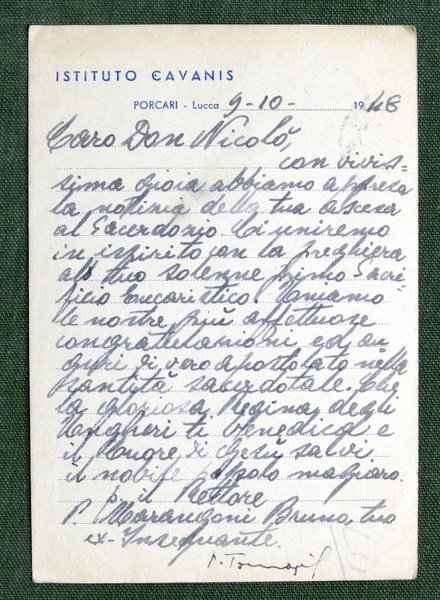 ISTITUTO CAVANIS
PORCARI - Lucca 9-10- 1948
Caro Don Nicolò,
con vivis-
sima gioia abbiamo appresa
la notizia della tua ascesa
al Sacerdozio. Ci uniremo
in ispirito con la preghiera
al tuo solenne primo Sacri-
ficio Eucaristico. Inviamo
le nostre più affettuose
congratulazioni ed au-
guri di vero apostolato nella
santità sacerdotale. Che
la gloriosa Regina degli
Ungheri ti benedica e
il Cuore di Gesù salvi
il nobile popolo magiaro.
il Rettore
P. Marangoni Bruno, tuo
ex-Insegnante.